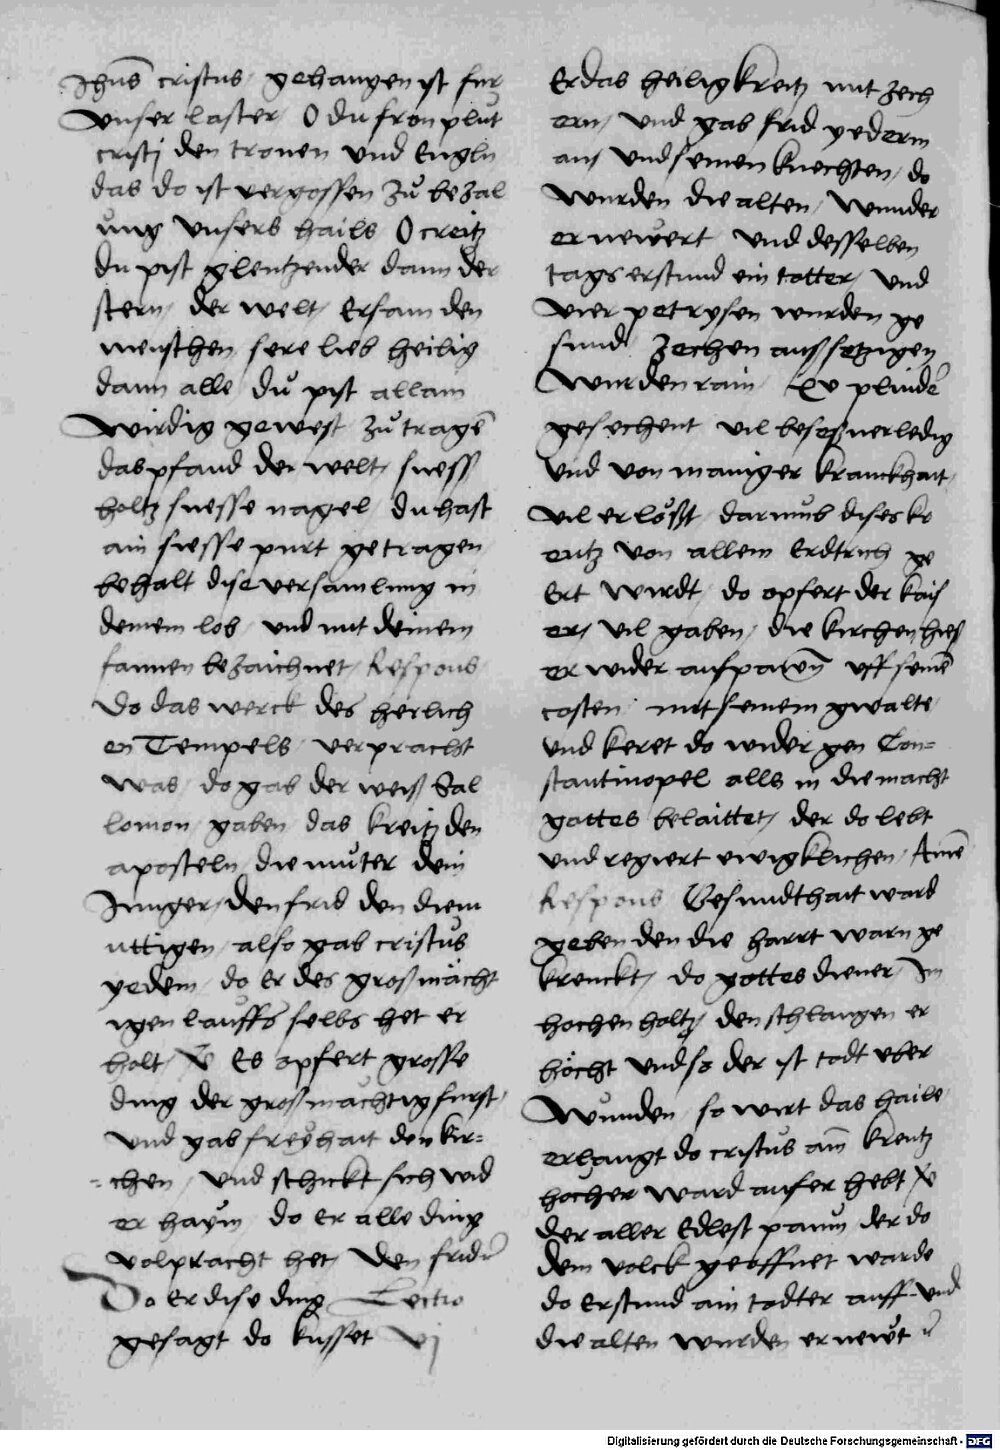 Jhūs cristus / gehangen ist fur
Unser laster / O du fron plut
cristj den tronen und Engln
das do ist vergossen zů bezal
ung unsers hails O creitz
du pist glentzender dann der
stern / der welt / Ersam den
menschen / sere lieb heilig
dann alle / du pist allain
wirdig gewest zů tragē
das pfand der welt / suess
holtz suesse nagel / du hast
ain siesse purt getragen /
behalt dise versamlung in
deinem lob / und mit deinem
fannen bezaichnet / Respons
Do das werck des herlich
en Tempels / verpracht
was / do gab der weiß Sal
lomon / gaben / das kreitz den
aposteln / die muter dem
Junger / den frid den diem
uttigen / also gab cristus
yedem / do Er des großmächt
igen lauffs selbs het er
holt / V Es opfert grosse
ding der großmächtig furst /
und gab freyhait den kir=
=chen / und schickt sich wid
er haym / do Er alle ding
volpracht het / Den frid
Do Er dise ding Lectio
gesagt do kusset vj
Er das heilig kreitz mit zech
ern / und gab frid yederm
an / und seinen knechten / do
wurden die alten / wunder
ernewert und desselben
tags erstund ein totter / und
vier petrysen wurden ge
sund zechen aussetzigen
wurden rain / xv plindē
gesechent vil besessner ledig
und von maniger kranckhait /
vil erlößt / darmub dises kr
eutz von allem Erdtrich ge
Ert wirdt / do opfert der kais
er / vil gaben / die kirchen hies
er wider aufpawen uff seinē
costen / mit seinem gwalte /
und keret do wider gen Con=
stantinopel alls in die macht
gottes belaittet / der do lebt
und regiert ewigklichen / Amē
Respons Gesundthait ward
geben den die hart warn ge
krenckt / do gottes diener / Im
hochen holtz / den schlangen er
höcht und so der ist todt uber
wunden / so wirt das haile /
erlangt do cristus am kreutz
hocher ward aufer hebt V
der aller Edlest paum der do
dem volck geoffnet warde
do Erstund ain todter auff und
die alten wurden ernewt